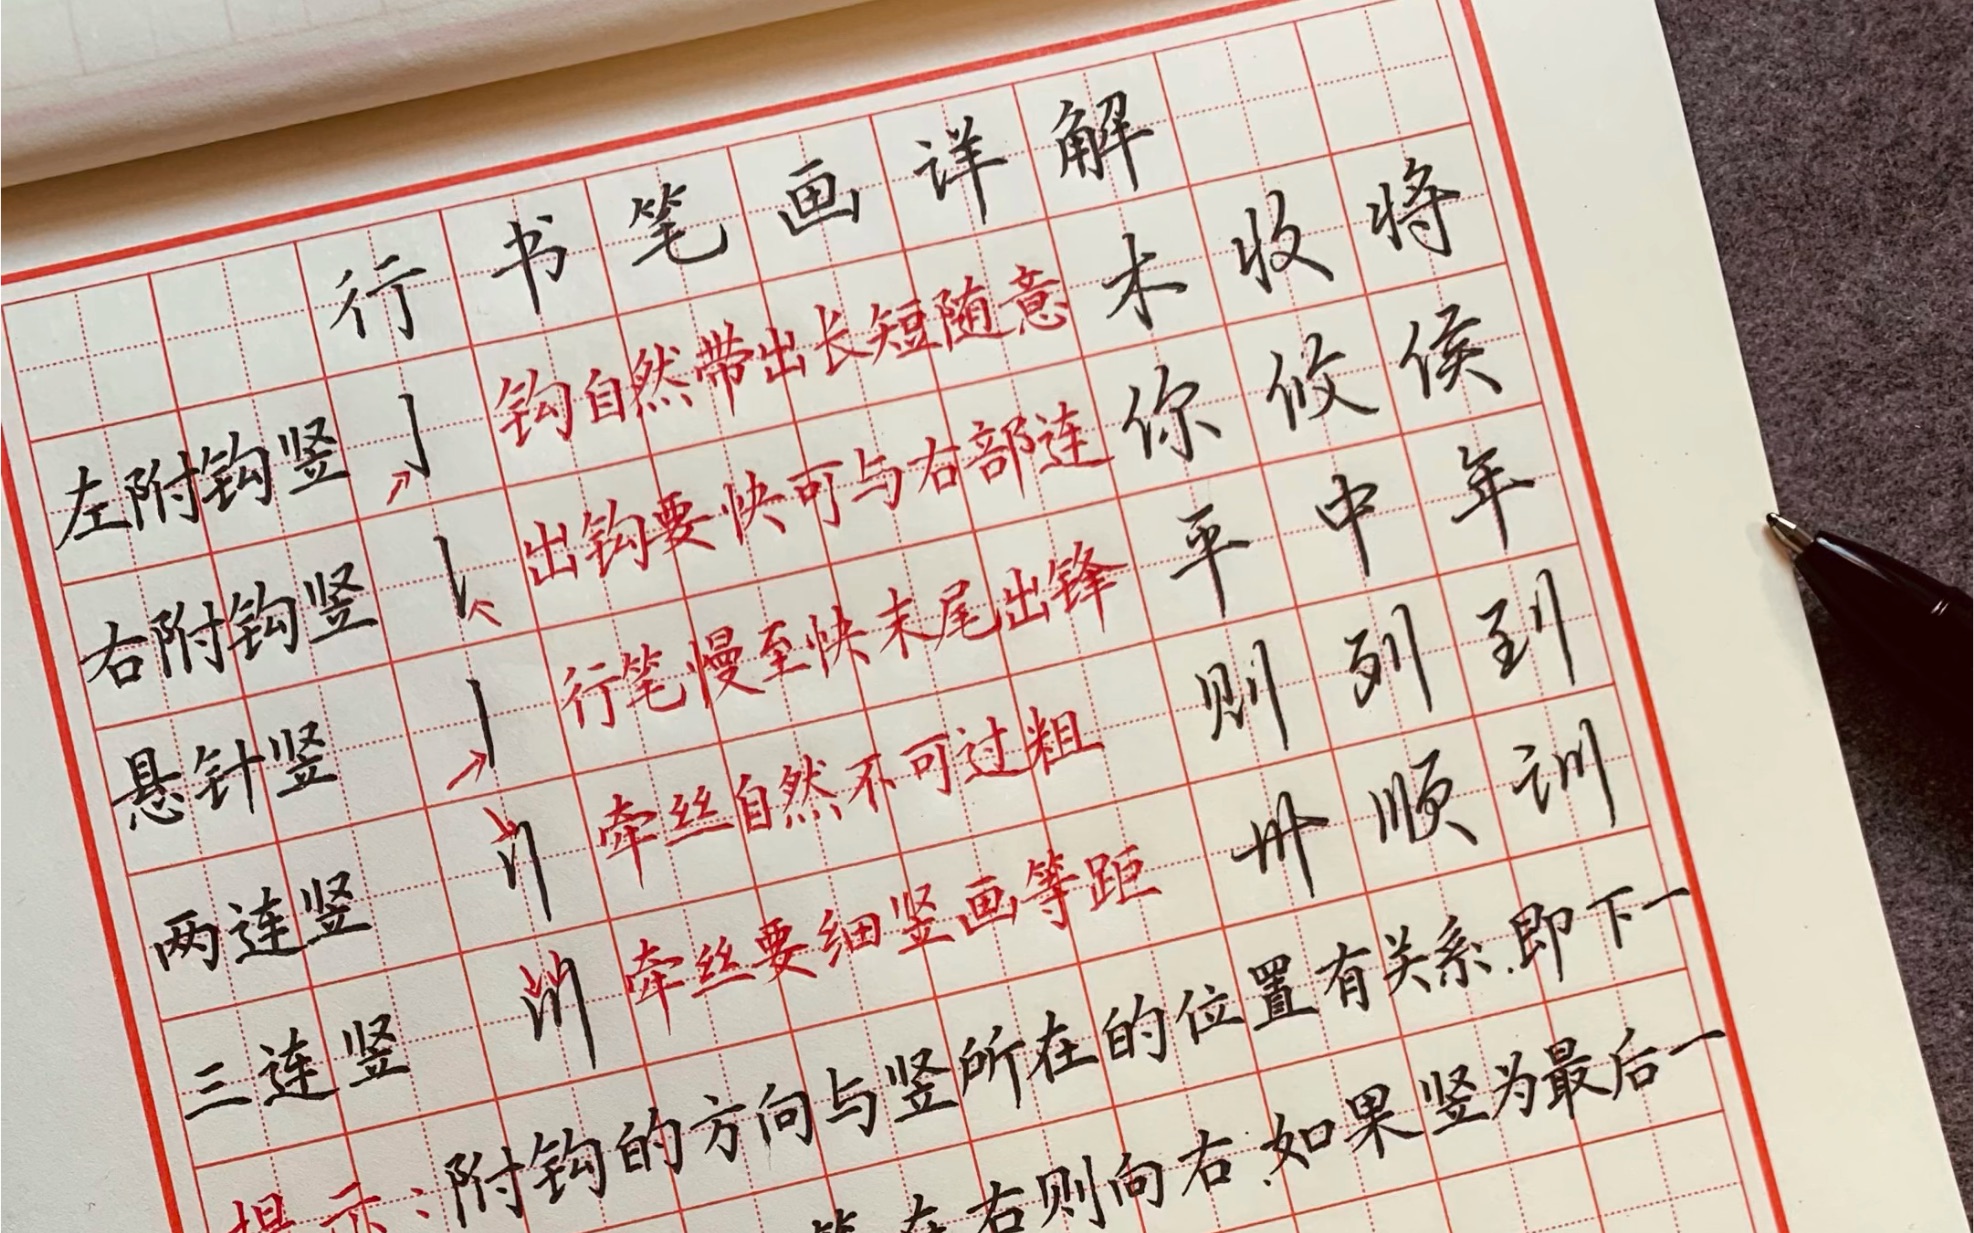 行书笔画详解
左附钩竖 钩自然带出长短随意 木 收 将
右附钩竖 出钩要快可与右部连 你 攸 侯
悬针竖 行笔慢至快末尾出锋 平 中 年
两连竖 牵丝自然不可过粗 则 列 到
三连竖 牵丝要细竖画等距 卅 顺 训
提示：附钩的方向与竖所在的位置有关系.即下一
在右则向右.如果竖为最后一